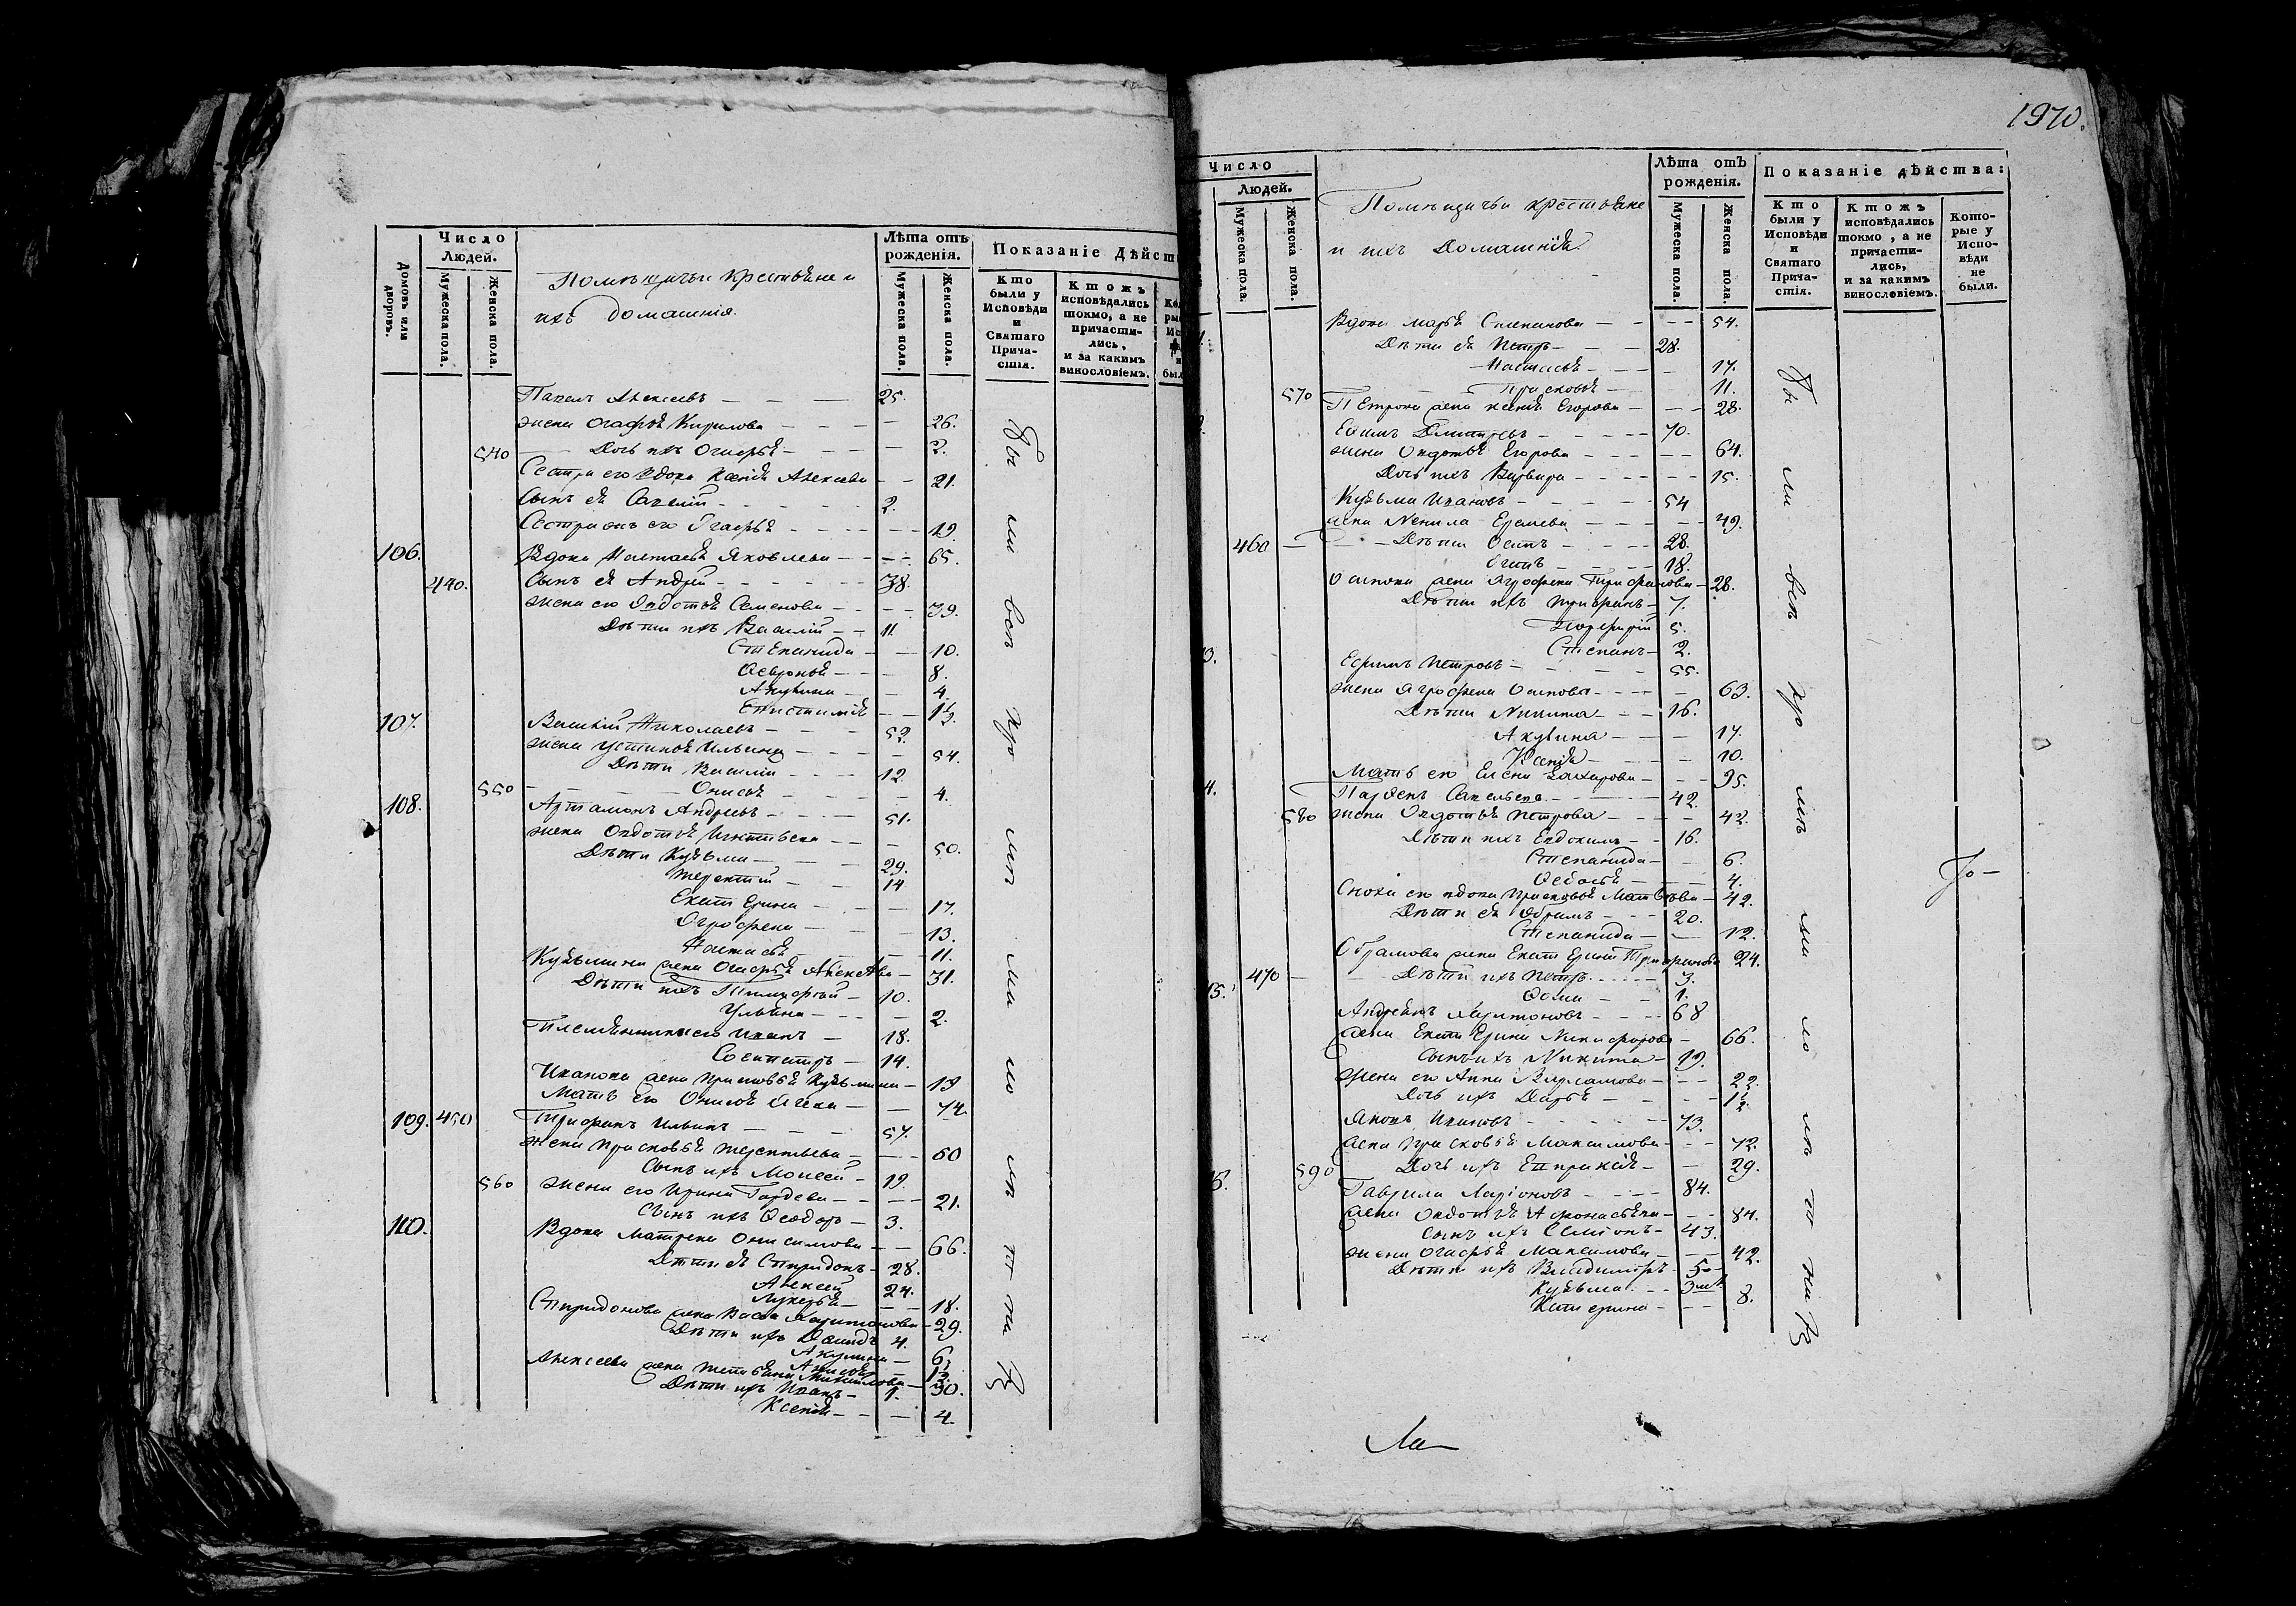 Число
Людей.
Лѣта отъ
рожденія.
Показаніе Дѣйст
Домовъ или
дворовъ.
Мужеска пола.
Женска пола.
Помѣщичьи крестьяне и
ихъ домашнія.
Мужеска пола.
Женска пола.
Кто
были у
Исповѣди
и
Святаго
Прича-
стія.
Ктожъ
исповѣдались
токмо, а не
причасти-
лись,
и за какимъ
винословіемъ.
Павелъ Алексѣевъ 25.
жена Огафья Кирилова 26.
540 Дочь ихъ Огафья 2.
Сестра его вдова Ксенія Алексеева 21.
Сынъ ея Савелій 2.
Сестра онъ его Огафья 19.
106. Вдова Настасья Яковлева 65.
440. Сынъ ея Андрей 38.
жена его Овдотья Семенова 39.
Дѣти ихъ Василій 11.
Степанида 10.
Ѳевронья 8.
Акулина 4.
Епистимія 1½.
107. Василій Николаевъ 52.
жена Устинья Ильина 54.
Дѣти Василій 12.
550 Онисья 4.
108. Артамонъ Андреевъ 51.
жена Овдотья Игнатьева 50.
Дѣти Кузьма 29.
Терентій 14
Екатерина 17.
Огрофена 13.
Настасья 11.
Кузьмина жена Огафья Алексѣева 31.
Дѣти ихъ Тимофей 10.
Ульяна 2.
Племянники его Иванъ 18.
Сосипатръ 14.
Иванова жена Прасковья Кузьмина 19
Мать его Онисья 74.
109. 450 Трифонъ Ильинъ 57.
жена Прасковья Терентьева 60
Сынъ ихъ Моисей 19.
560 жена его Ирина Гордеева 21.
Сынъ ихъ Ѳеодоръ 3.
110. Вдова Матрена Онисимова 66.
Дѣти ея Спиридонъ 28.
Алексей 24.
Лукерья 18.
Спиридонова жена Васса Харитонова 29.
Дѣти ихъ Давидъ 4.
Акулина 6.
Анисья 1½.
Алексеева жена Татьяна Михайлова 30.
Дѣти ихъ Иванъ 1.
Ксенія 4.
бы ли всѣ кро мѣ ма ло лѣ т на го
1970.
Число
Людей.
Лѣта отъ
рожденія.
Показаніе дѣйства:
Мужеска пола.
Женска пола.
Помѣщичьи крестьяне
и ихъ Домашнія.
Мужеска пола.
Женска пола.
Кто
были у
Исповѣди
и
Святаго
Прича-
стія.
Ктожъ
исповѣдались
токмо, а не
причасти-
лись,
и за какимъ
винословіемъ.
Кото-
рые у
Испо-
вѣди
не
были.
Вдова Марья Степанова 54.
Дѣти ея Петръ 28.
Настасья 17.
570 Прасковья 11.
Петрова жена Ксенія Егорова 28.
Ефимъ Дмитріевъ 70.
жена Овдотья Егорова 64.
Дочь ихъ Варвара 15.
Кузьма Ивановъ 54
жена Ненила Еремеева 49.
460 Дѣти Осипъ 28.
18.
Осипова жена Огрофена Трифонова 28.
Дѣти ихъ Трифонъ 7.
Порфирій 5.
Степанъ 2.
Ефимъ Петровъ 55.
жена Огрофена Осипова 63.
Дѣти Никита 16.
Акулина 17.
Ксенія 10.
Мать его Елена Захарова 95.
Парфенъ Савельевъ 42.
580 жена Овдотья Петрова 42.
Дѣти ихъ Евдокимъ 16.
Степанида 6.
Ѳедосья 4.
Сноха его вдова Прасковья Матвѣева 42.
Дѣти ея Абрамъ 20.
Степанида 12.
Обрамова жена Екатерина Трифонова 24.
470 Дѣти ихъ Петръ 3.
Ѳома 1.
Андрейнъ Харитоновъ 68
жена Екатерина Никифорова 66.
Сынъ ихъ Никита 19.
жена его Анна Варламова 22.
Дочь ихъ Дарья 1½.
Яковъ Ивановъ 73.
жена Прасковья Максимова 72.
590 Дочь ихъ Евпраксія 29.
Гаврила Ларіоновъ 84.
жена Овдотья Афонасьева 84.
Сынъ ихъ Семіонъ 43.
жена Огафья Максимова 42.
Дѣти ихъ Владимиръ 5
Кузьма 3
Катерина 8.
бы ли всѣ кро мѣ ма ло лѣ т на го